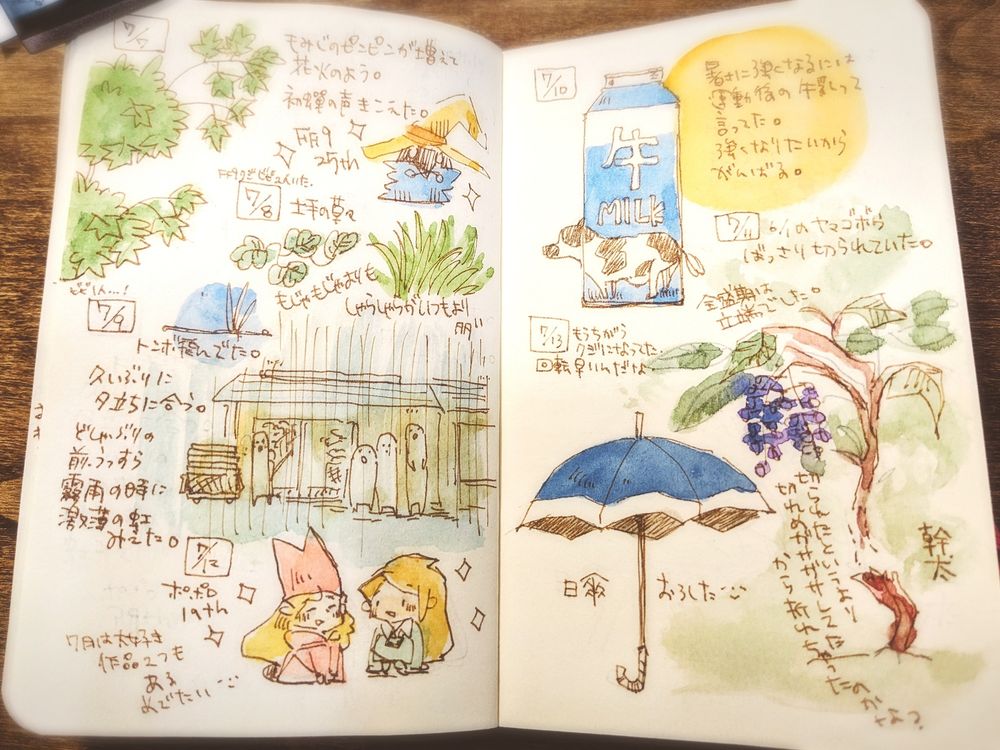 7/7
もみじのピンピンが増えて
花火のよう。
初蝉の声きこえた。
FF9
25th
7/8
土手の草々
もじゃもじゃよりも
しゃらしゃらがいつもより
7/9
トンボ飛んでた。
久しぶりに
夕立ちに合う。
どしゃぶりの
前、うっすら
霧雨の時に
激薄の虹
みてた。
7/12
ポポロ
19th
7月は大好き
作品2つも
ある
めでたい
7/10
牛
MILK
暑さに強くなるには
運動後の牛乳って
言ってた。
強くなりたいから
がんばる。
7/11
6/1のヤマゴボウ
ばっさり切られていた。
全盛期は
立派でした。
7/13
もうちがう
クギになってた
回転早いんだな
日傘
おろした
幹太
切られたというより
切れめがガサガサしてた
から折れちゃったのかなっ